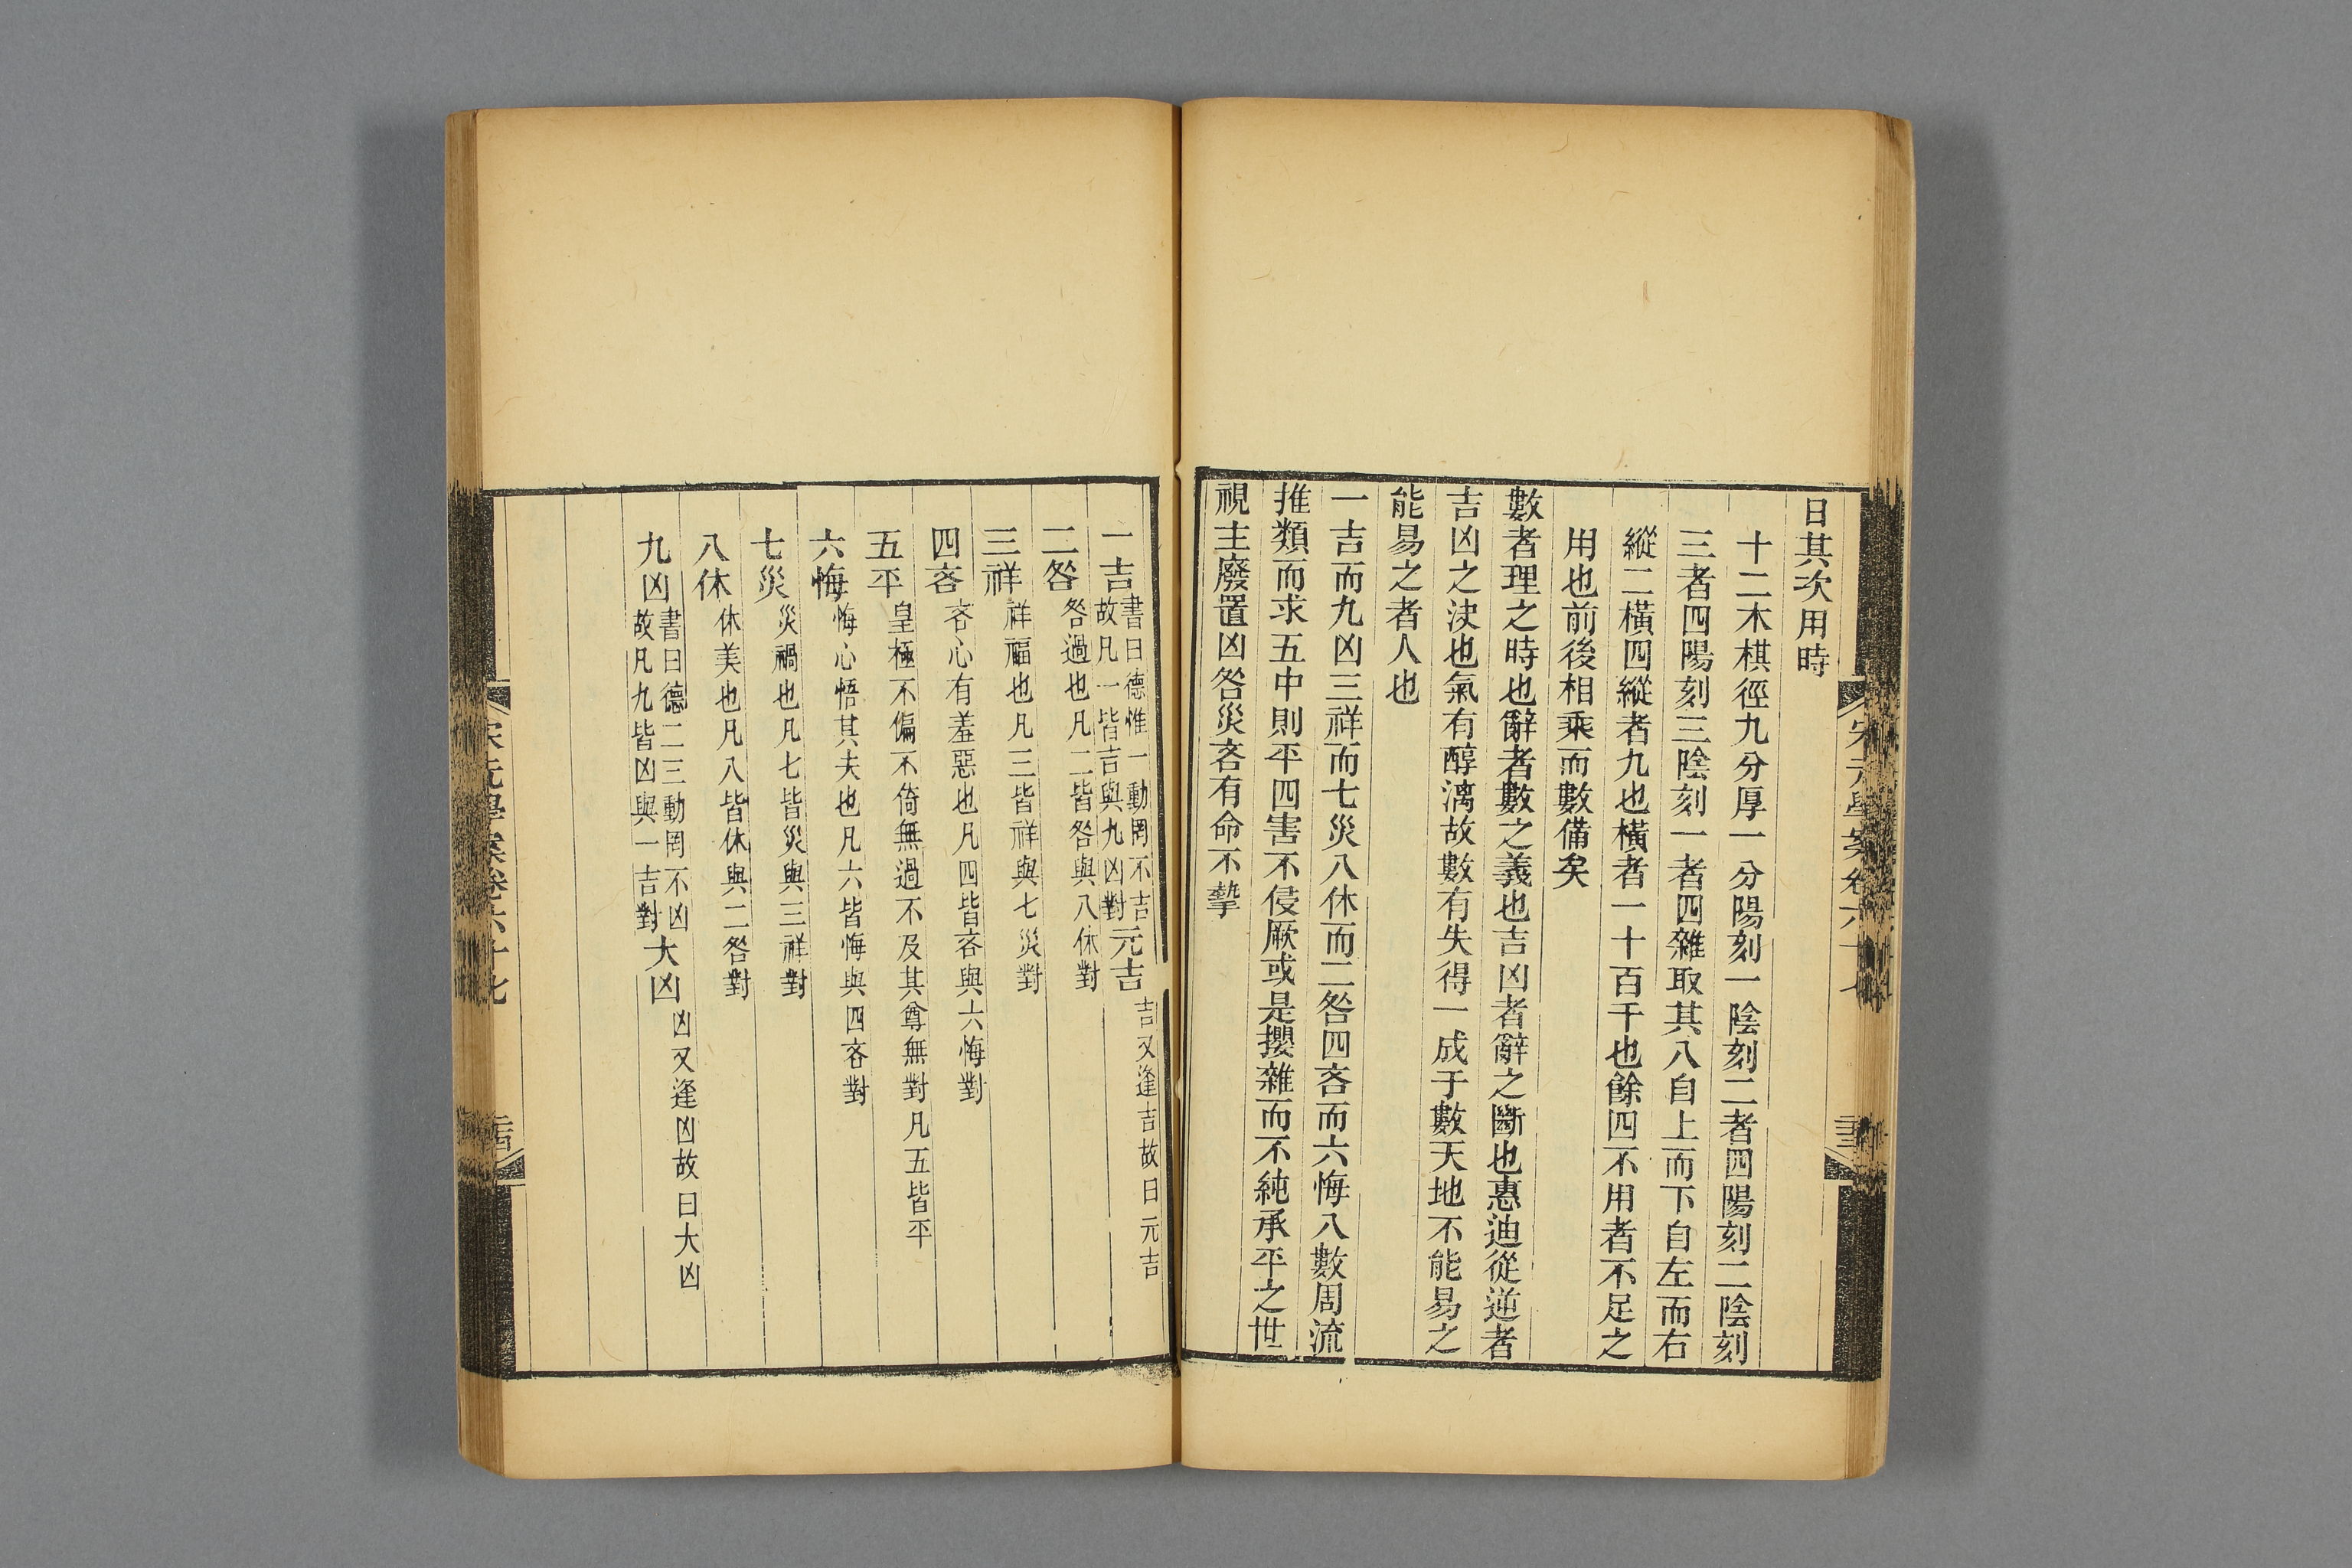 日其次用時
十二木棋徑九分厚一分陽刻一陰刻二者四陽刻二陰刻
三者四陽刻三陰刻一者四雜取其八自上而下自左而右
縱二橫四縱者九也橫者一十百千也餘四不用者不足之
用也前後相乘而數備矣
數者理之時也辭者數之義也吉凶者辭之斷也惠迪從逆者
吉凶之決也氣有醇漓故數有失得一成于數天地不能易之
能易之者人也
一吉而九凶三祥而七災八休而二咎四吝而六悔八數周流
推類而求五中則平四害不侵厥或是攖雜而不純承平之世
視主廢置凶咎災吝有命不摯
一吉書曰德惟一動罔不吉
故凡一皆吉與九凶對元吉吉又逢吉故曰元吉
二咎咎過也凡二皆咎與八休對
三祥祥福也凡三皆祥與七災對
四吝吝心有羞惡也凡四皆吝與六悔對
五平皇極不偏不倚無過不及其尊無對凡五皆平
六悔悔心悟其失也凡六皆悔與四吝對
七災災禍也凡七皆災與三祥對
八休休美也凡八皆休與二咎對
九凶書曰德二三動罔不凶
故凡九皆凶與一吉對大凶凶又逢凶故曰大凶
宋元學案卷六十七